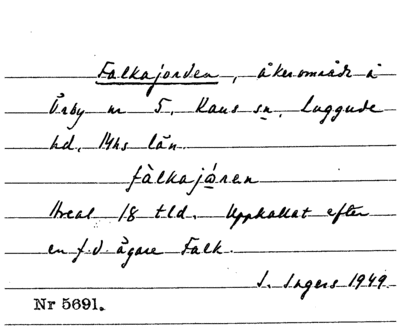 Falkajorden, åkerområde å
Örby nr 5, Kaus sn, Luggude
hd, Mhs län.
fàlkajǫren
Areal 18 tld. Uppkallat efter
en f.d. ägare Falk.
I. Ingers 1949
Nr 5691.